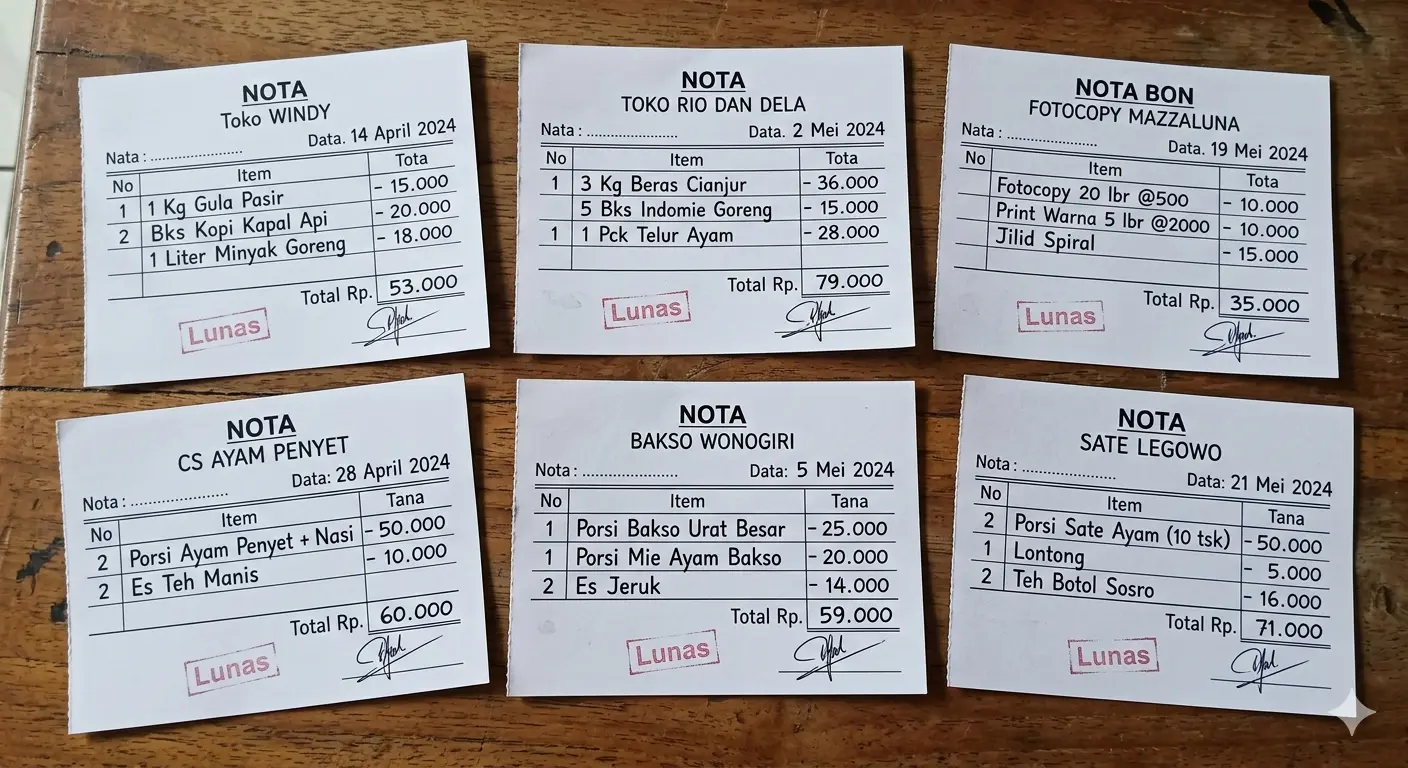 NOTA
Toko WINDY
Nata : ....................... Data. 14 April 2024
No Item Tota
1 1 Kg Gula Pasir - 15.000
2 Bks Kopi Kapal Api - 20.000
1 Liter Minyak Goreng - 18.000
Total Rp. 53.000
Lunas
NOTA
TOKO RIO DAN DELA
Nata : ....................... Data. 2 Mei 2024
No Item Tota
1 3 Kg Beras Cianjur - 36.000
5 Bks Indomie Goreng - 15.000
1 1 Pck Telur Ayam - 28.000
Total Rp. 79.000
Lunas
NOTA BON
FOTOCOPY MAZZALUNA
Nata : ....................... Data. 19 Mei 2024
No Item Total
Fotocopy 20 lbr @500 - 10.000
Print Warna 5 lbr @2000 - 10.000
Jilid Spiral - 15.000
Total Rp. 35.000
Lunas
NOTA
CS AYAM PENYET
Nota : ........................ Data: 28 April 2024
No Item Tana
2 Porsi Ayam Penyet + Nasi - 50.000
2 Es Teh Manis - 10.000
Total Rp. 60.000
Lunas
NOTA
BAKSO WONOGIRI
Nota : ........................ Data: 5 Mei 2024
No Item Tana
1 Porsi Bakso Urat Besar - 25.000
1 Porsi Mie Ayam Bakso - 20.000
2 Es Jeruk - 14.000
Total Rp. 59.000
Lunas
NOTA
SATE LEGOWO
Nota : ....................... Data: 21 Mei 2024
No Item Tana
2 Porsi Sate Ayam (10 tsk) - 50.000
1 Lontong - 5.000
2 Teh Botol Sosro - 16.000
Total Rp. 71.000
Lunas